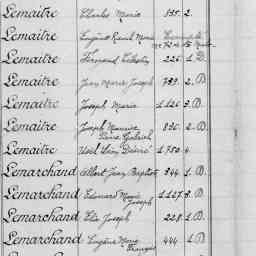 Lemaitre Charles Marie 835. 2.
Lemaitre Eugène René Marie
Lemaitre Fernand Célestin 225 1. D.
Lemaitre Jean Marie Joseph 789. 2. D.
Lemaitre Joseph Marie 1.126 3. D.
Lemaitre Joseph Maurice 836. 2. D.
Pierre Gabriel
Lemaitre Noël Léon Désiré 1.780 4.
Lemarchand Albert Jean Baptiste 344 1. D.
Lemarchand Edouard Marie 1.127 3. D.
Joseph
Lemarchand Elie Joseph 228 1. D.
Lemarchand Eugène Marie 444 1. D.
François